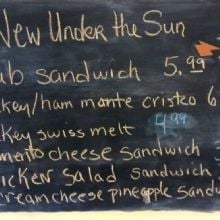 New Under the Sun
ub sandwich 5.99
key/ham monte cristo 6
key swiss melt 4.99
mento cheese sandwich
icken salad sandwich
cream cheese pineapple sandw